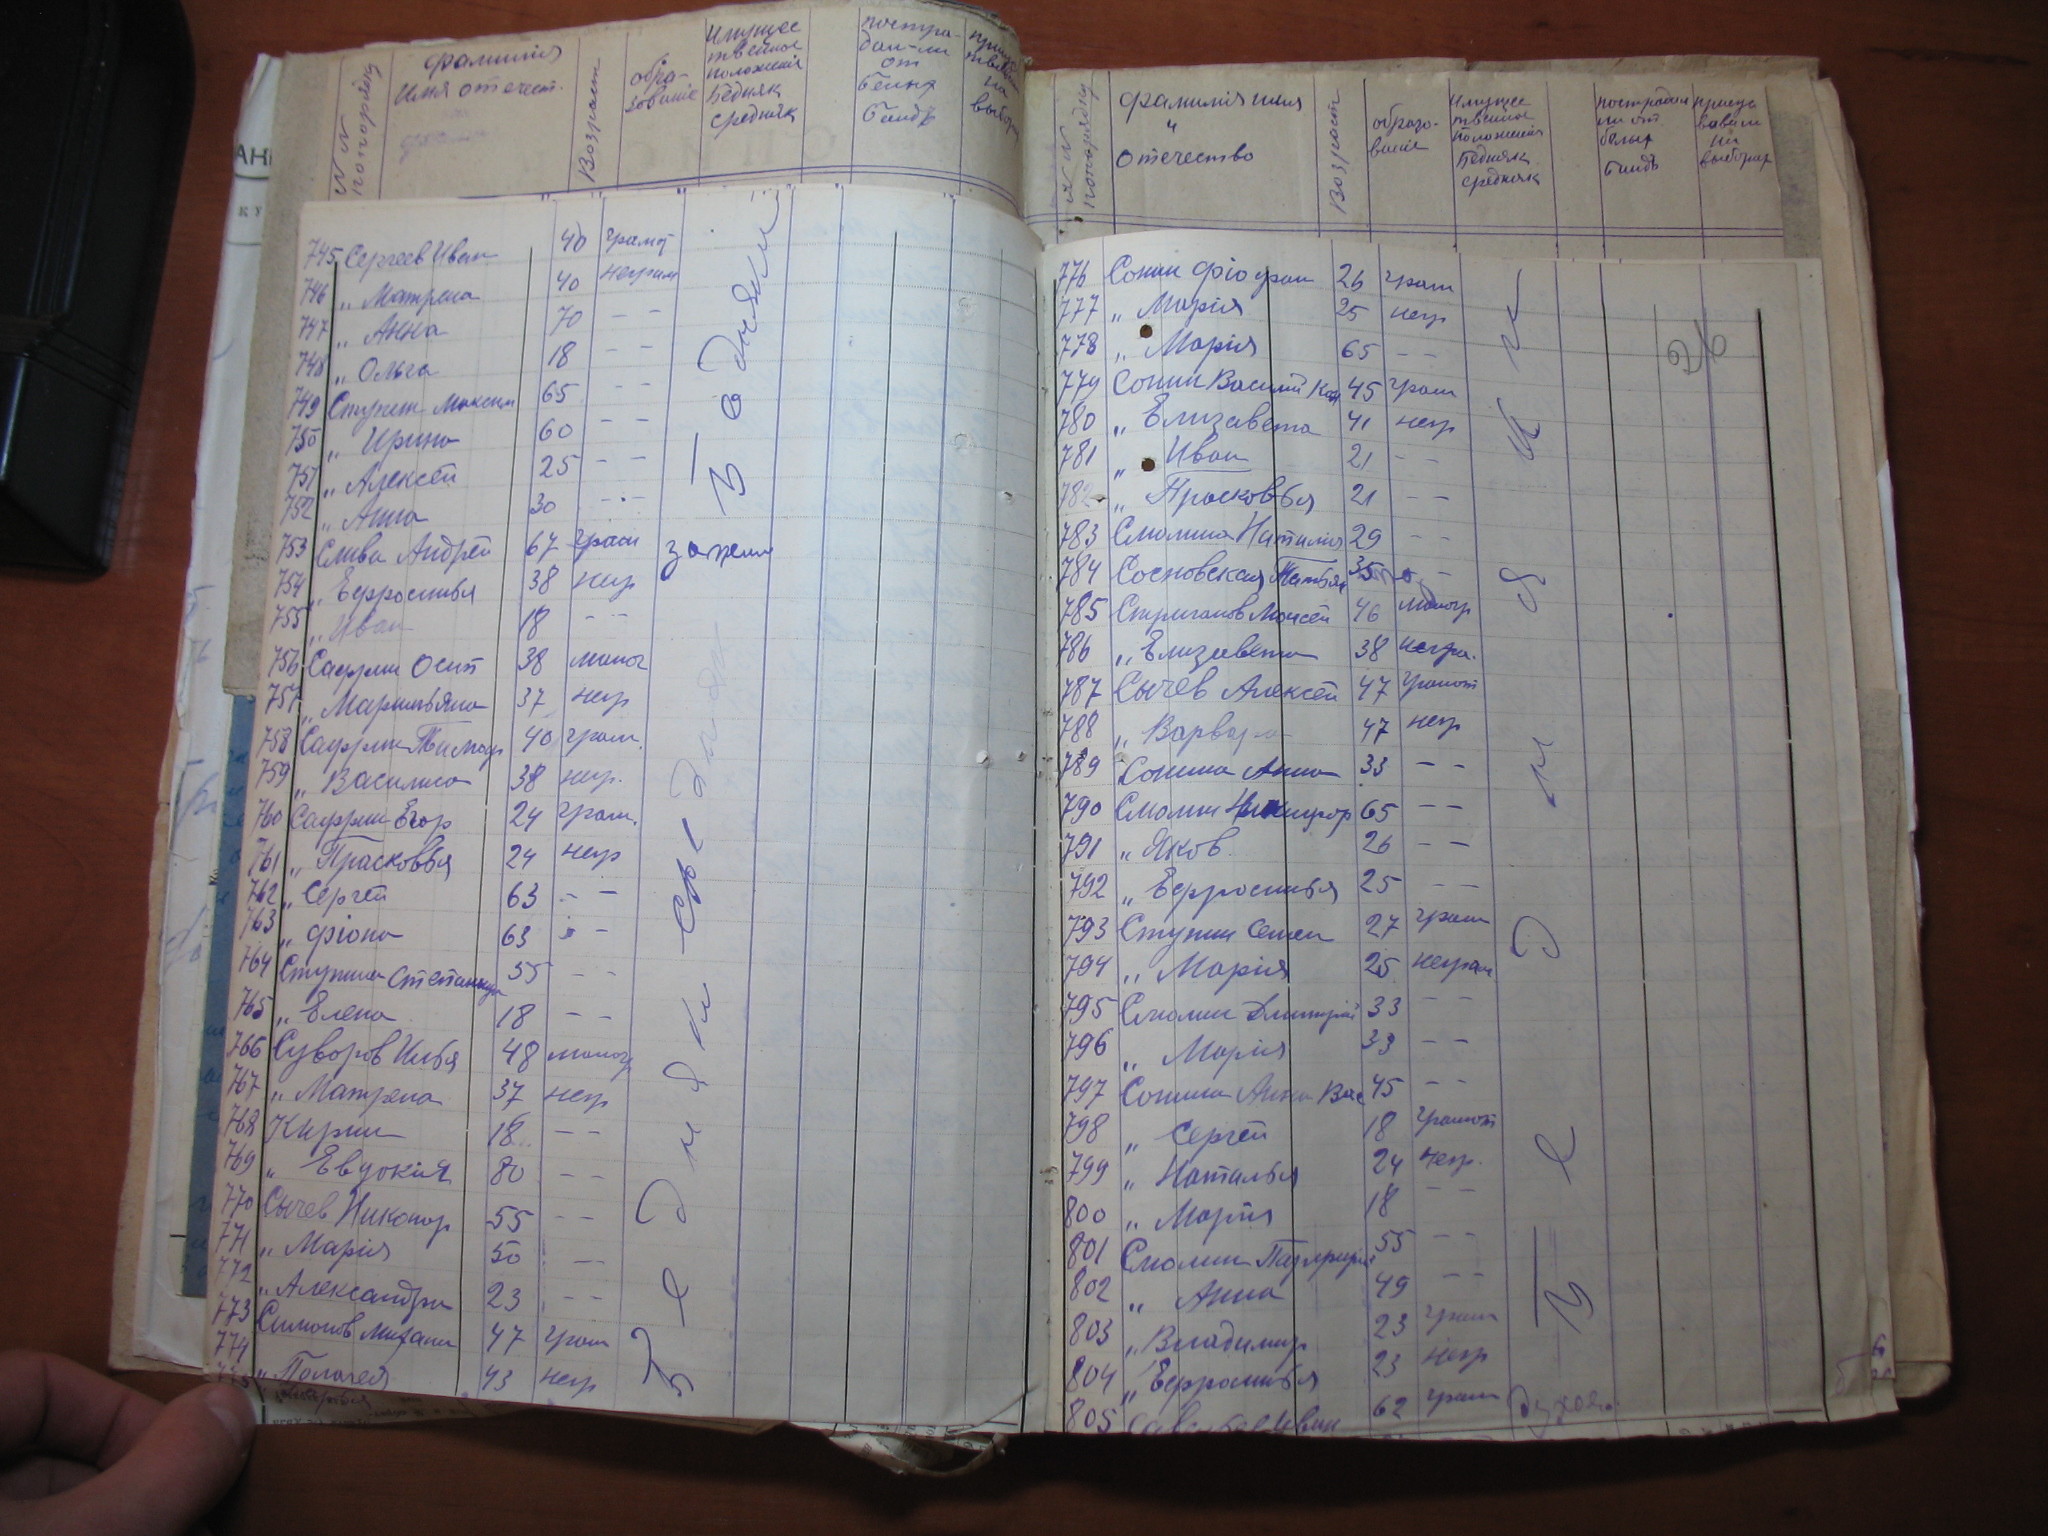 № № по порядку
фамилія
имя отечест.
Возраст
обра-
зованіе
Имущес
твенное
положенія
Бедняк
средняк
постра-
дан-ли
от
белых
бандъ
на
выбор
745 Сергеев Иван 40 грамот
746 „ Матрена 40 неграм
747 „ Анна 70 – –
748 „ Ольга 18 – –
749 Ступин Максим 65 – –
750 „ Ирина 60 – –
751 „ Алексей 25 – –
752 „ Анна 30 – –
753 Слива Андрей 67 грам
754 „ Ефросинья 38 негр
755 „ Иван 18 – –
756 Сафрин Осип 38 малог
757 „ Маримьяна 37 негр
758 Сафрин Тимоф 40 грам.
759 „ Василиса 38 негр.
760 Сафрин Егор 24 грам.
761 „ Прасковья 24 негр
762 „ Сергей 63 – –
763 „ фіона 63 – –
764 Ступина Степанида 55 – –
765 „ Елена 18 – –
766 Суворов Илья 48 малогр
767 „ Матрена 37 негр
768 Кирил 18 – –
769 „ Евдокия 80 – –
770 Сычев Никонор 55 – –
771 „ Марія 50 – –
772 „ Александра 23 – –
773 Симонов Михаил 47 грам
774 „ Полагея 43 негр
775
Бедняки средняки
№ № по порядку
фамилія имя
„
отечество
Возраст
образо-
ваніе
Имущес
твенное
положенія
Бедняк
средняк
пострадал
ли от
белых
бандъ
присуц
вовали
на
выборах
26
776 Сонин фіофан 26 грам
777 „ Марія 25 негр
778 „ Марія 65 – –
779 Сонин Василій Кон 45 грам
780 „ Елизавета 41 негр
781 „ Иван 21 – –
782 „ Прасковья 21 – –
783 Смолина Наталия 29 – –
784 Сосновская Татьян 35 –
785 Стриганов Моисей 46 малогр
786 „ Елизавета 38 негра.
787 Сычев Алексей 47 грамот
788 „ Варвара 47 негр
789 Сонина Анна 33 – –
790 Смолин Никифор 65 – –
791 „ Яков 26 – –
792 „ Ефросинья 25 – –
793 Ступин Семен 27 грам
794 „ Марія 25 неграм
795 Смолин Дмитрій 33 – –
796 „ Марія 33 – –
797 Сонина Анна Вас 45 – –
798 „ Сергей 18 грамот
799 „ Наталья 24 негр.
800 „ Марія 18 – –
801 Смолин 55 – –
802 „ Анна 49 – –
803 „ Владимир 23 грам
804 „ Ефросинья 23 негр
805 Иван 62 грам духов.
Бедняки